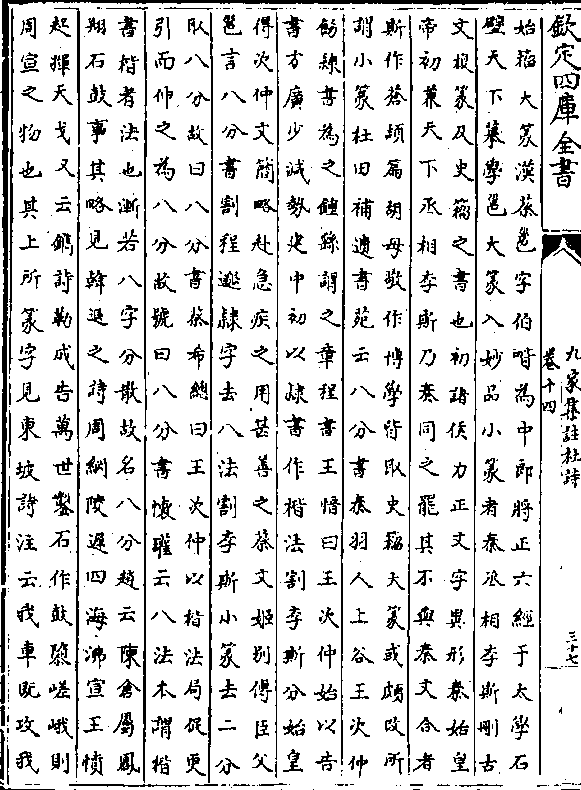 欽定四庫全書
九家集註杜詩
卷十四
三十七
始籀大篆漢蔡邕字伯喈為中郎將正六經于太學石
壁天下摹學邕大篆入妙品小篆者秦丞相李斯刪古
文複篆及史籀之書也初諸侯力正文字異形秦始皇
帝初兼天下丞相李斯乃奏同之罷其不與秦文合者
斯作蒼頡篇胡母敬作博學皆取史籀大篆或頗改所
謂小篆杜田補遺書苑云八分書秦羽人上谷王次仲
飾隸書為之鍾繇謂之章程書王愔曰王次仲始以古
書方廣少減勢建中初以隸書作楷法割李斯分始皇
得次仲文簡略赴急疾之用甚善之蔡文姬別傳臣父
邕言八分書割程邈隸字去八法割李斯小篆去二分
取八分故曰八分書蔡希綜曰王次仲以楷法局促更
引而伸之為八分故號曰八分書懷瓘云八法本謂楷
書楷者法也漸若八字分散故名八分趙云陳倉屬鳳
翔石鼓事其略見韓退之詩周綱陵遲四海沸宣王憤
起揮天戈又云鐫詩勒成告萬世鑿石作鼓隳嵯峨則
周宣之物也其上所篆字見東坡詩注云我車既攻我